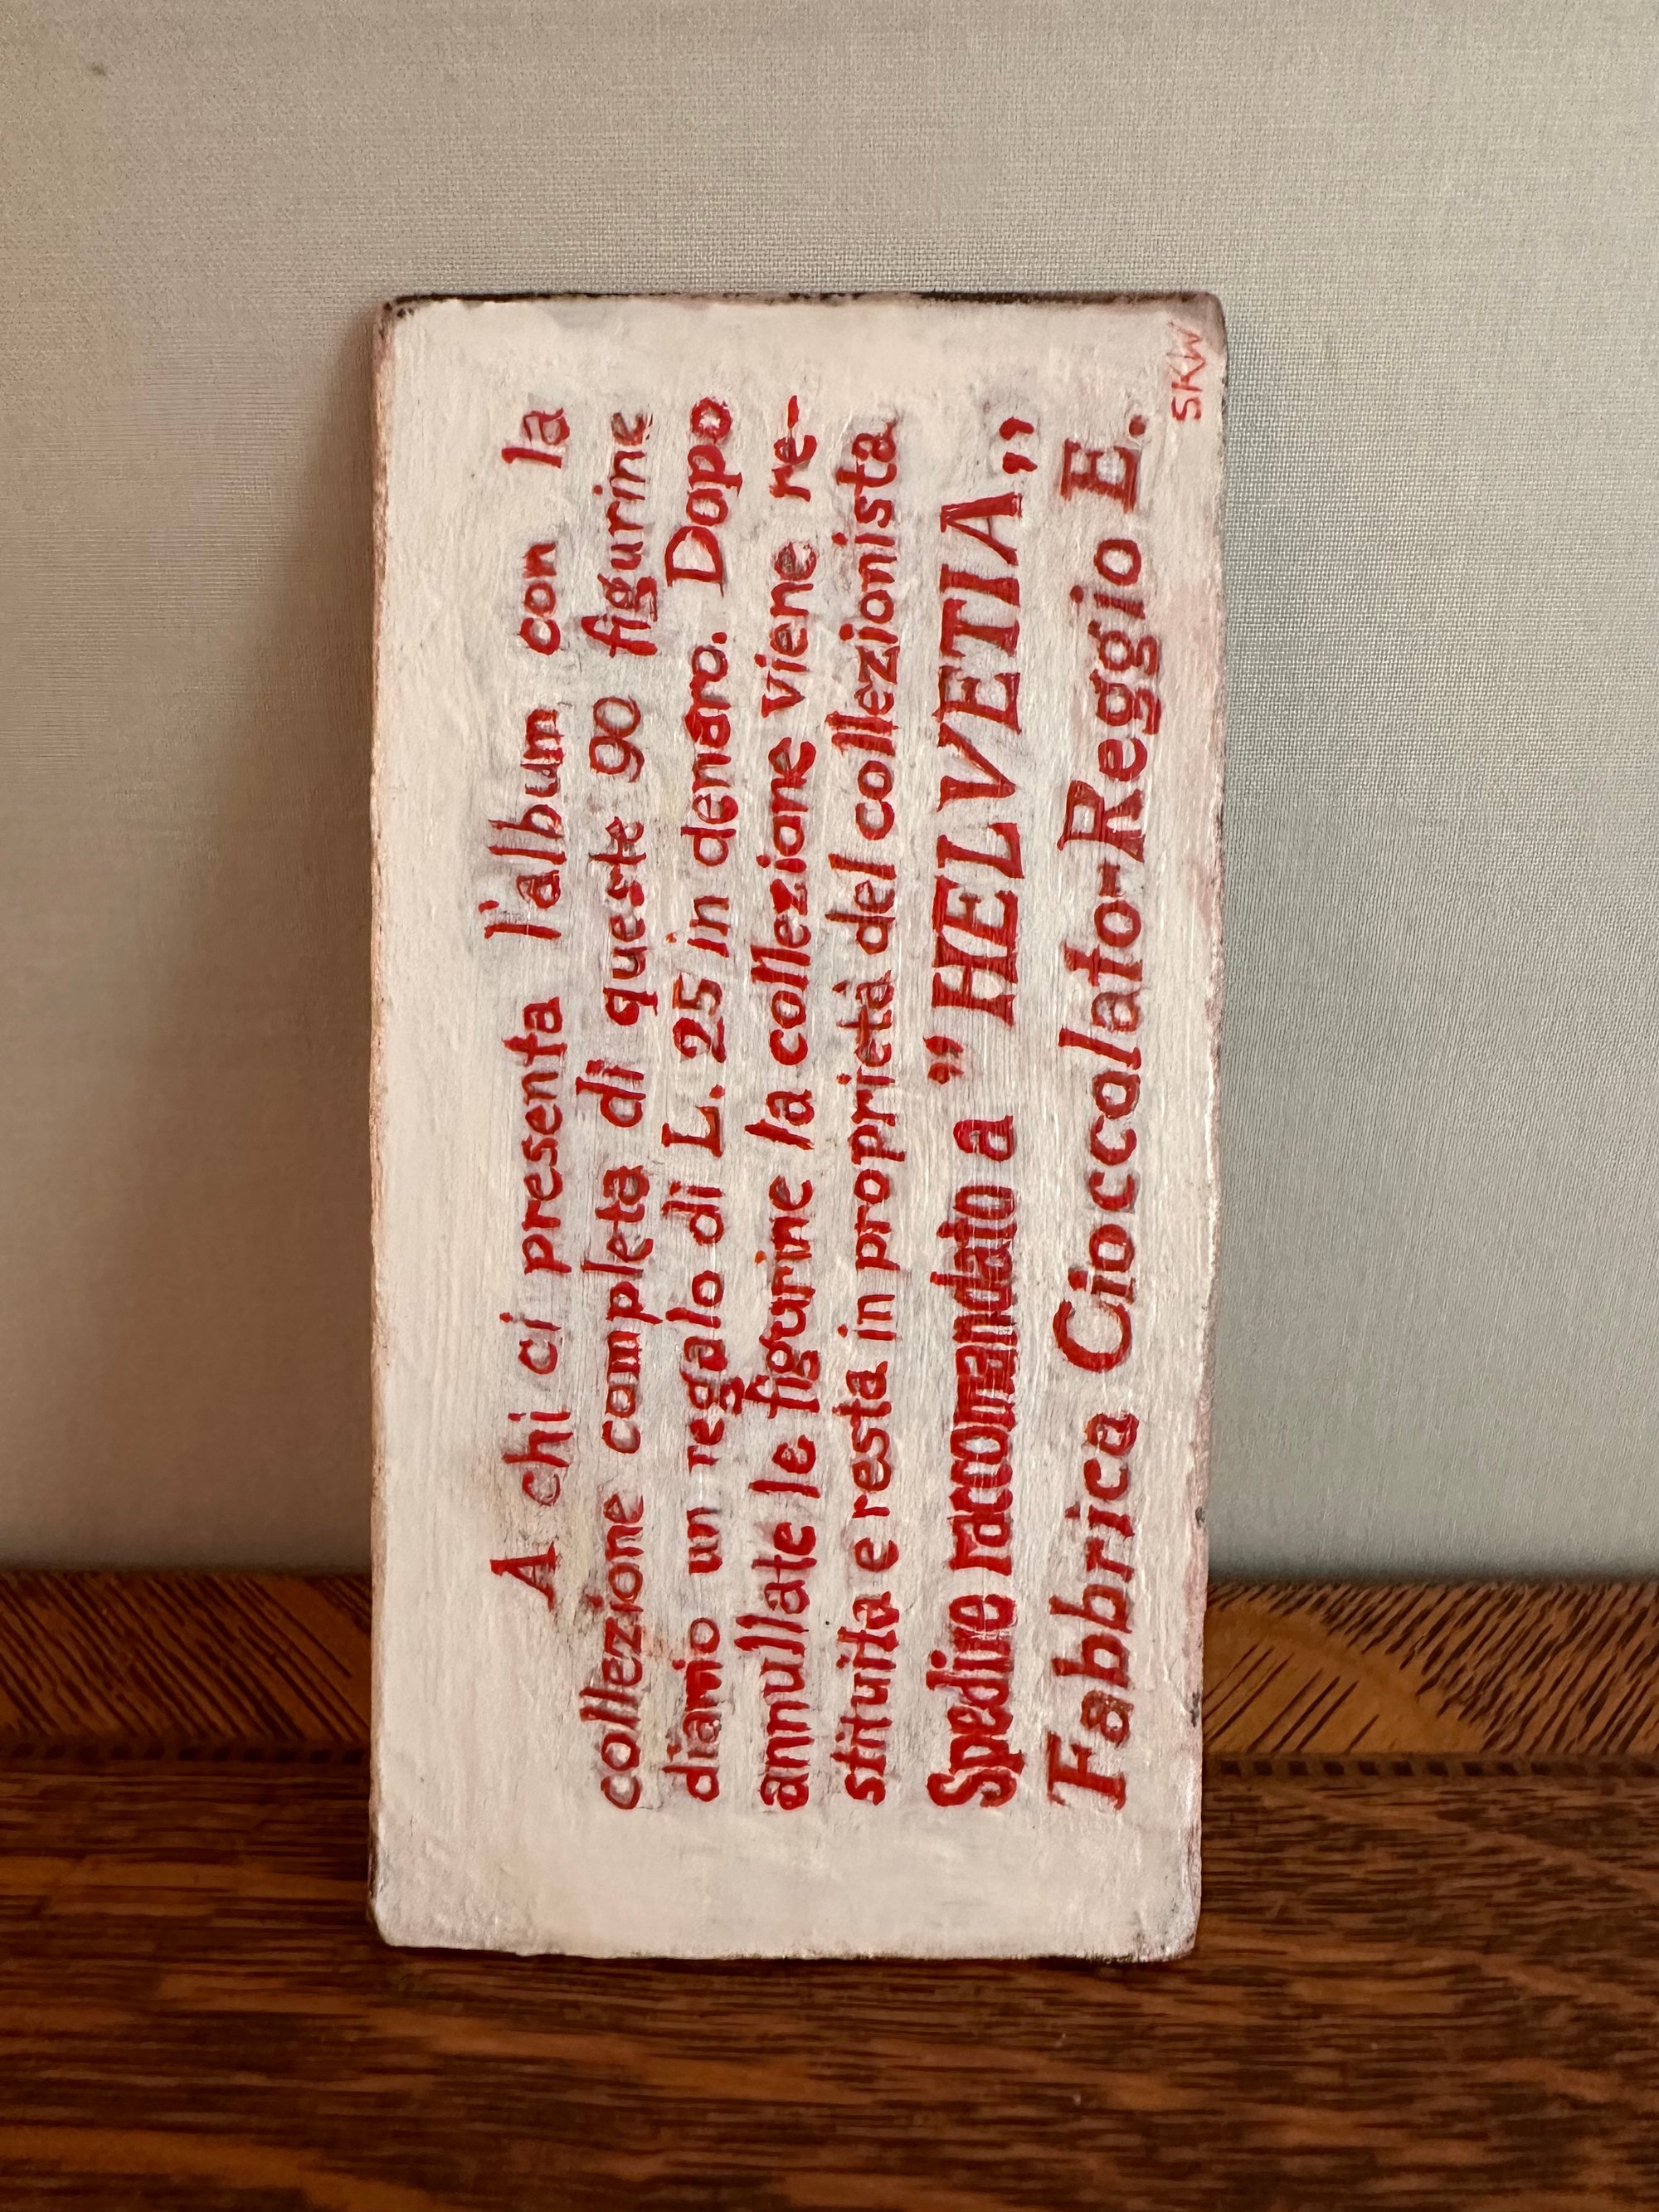 A chi ci presenta l'album con la
collezione completa di queste 90 figurine
diamo un regalo di L. 25 in denaro. Dopo
annullate le figurine la collezione viene re-
stituita e resta in proprietà del collezionista
Spedire raccomandato a "HELVETIA„
Fabbrica Cioccolato-Reggio E.
SKW